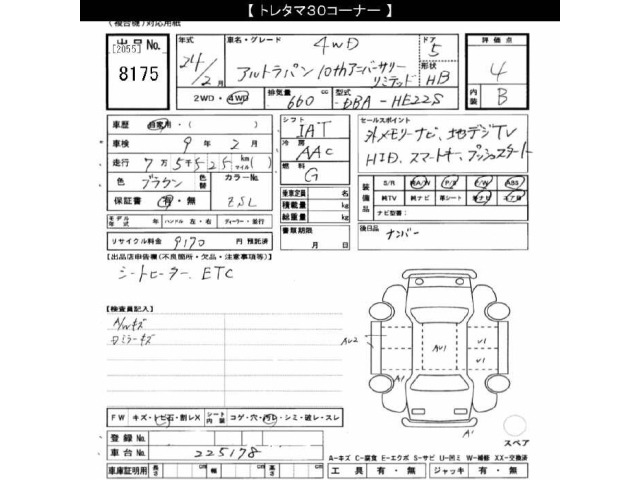 【 トレタマ30コーナー 】
(複合機)対応用紙
出品No. [2055] 8175
年式 24/2月
車名・グレード 4WD
アルトラパン 10thアニバーサリーリミテッド
ドア 5
形状 HB
2WD・4WD
排気量 660 cc
型式 DBA-HE22S
評価点 4
内装 B
車歴 自家用・( )
車検 9年 2月
走行 7万5千525 km マイル ( )
色 ブラウン 色替
カラーNo. ZSL
保証書 有・無
モデル年式 年 ハンドル 左・右 ディーラー・並行
リサイクル料金 9170 円 預託済
シフト IAT
冷房 AAC
燃料 G
乗車定員 名
積載量 kg
総重量 kg
書類期限 月 日
セールスポイント
外メモリーナビ、地デジTV
HID、スマートキー、プッシュスタート
装備品 S/R 純A/W P/S P/W ABS
純TV 純ナビ 革シート 社ナビ エアB
ナビ型番:
後日品 ナンバー
【出品店申告欄(不良箇所・欠品・注意事項等)】
シートヒーター、ETC
【検査員記入】
A/Wキズ
ロミラーキズ
AU2
AU1
U1
U1
A1
A1
スペア
FW キズ・トビ石・割レX シート内装 コゲ・穴・汚レ・シミ・破レ・スレ
登録No.
車台No. 225178
A-キズ C-腐食 E-エクボ S-サビ U-凹ミ W-補修 XX-交換済
車庫証明用 長さ cm 幅 cm 高さ cm
工具 有・無 ジャッキ 有・無